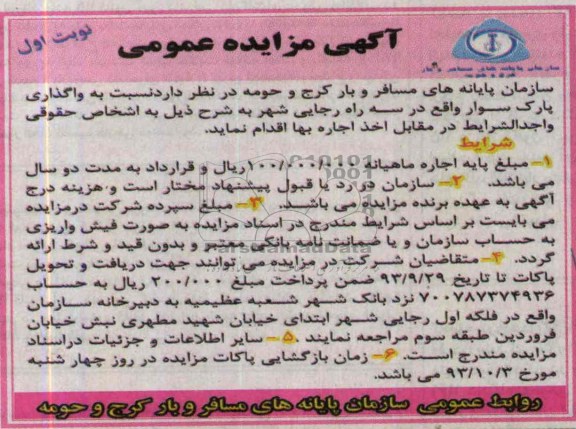 نوبت اول
آگهی مزایده عمومی
سازمان پایانه های مسافر و بار
کرج و حومه
سازمان پایانه های مسافر و بار کرج و حومه در نظر داردنسبت به واگذاری
پارک سوار واقع در سه راه رجایی شهر به شرح ذیل به اشخاص حقوقی
واجدالشرایط در مقابل اخذ اجاره بها اقدام نماید.
شرایط
۱- مبلغ پایه اجاره ماهیانه ۱۰۰/۰۰۰/۰۰۰ریال و قرارداد به مدت دو سال
می باشد. ۲- سازمان در رد یا قبول پیشنهاد مختار است و هزینه درج
آگهی به عهده برنده مزایده می باشد. ۳- مبلغ سپرده شرکت درمزایده
می بایست بر اساس شرایط مندرج در اسناد مزایده به صورت فیش واریزی
به حساب سازمان و یا ضمانت نامه بانکی معتبر و بدون قید و شرط ارائه
گردد. ۴- متقاضیان شرکت در مزایده می توانند جهت دریافت و تحویل
پاکات تا تاریخ ۹۳/۹/۲۹ ضمن پرداخت مبلغ ۲۰۰/۰۰۰ ریال به حساب
۷۰۰۷۸۷۳۷۴۹۳۶ نزد بانک شهر شعبه عظیمیه به دبیرخانه سازمان
واقع در فلکه اول رجایی شهر ابتدای خیابان شهید مطهری نبش خیابان
فروردین طبقه سوم مراجعه نمایند .۵- سایر اطلاعات و جزئیات دراسناد
مزایده مندرج است. ۶- زمان بازگشایی پاکات مزایده در روز چهار شنبه
مورخ ۹۳/۱۰/۳ می باشد.
روابط عمومی سازمان پایانه های مسافر و بار کرج و حومه